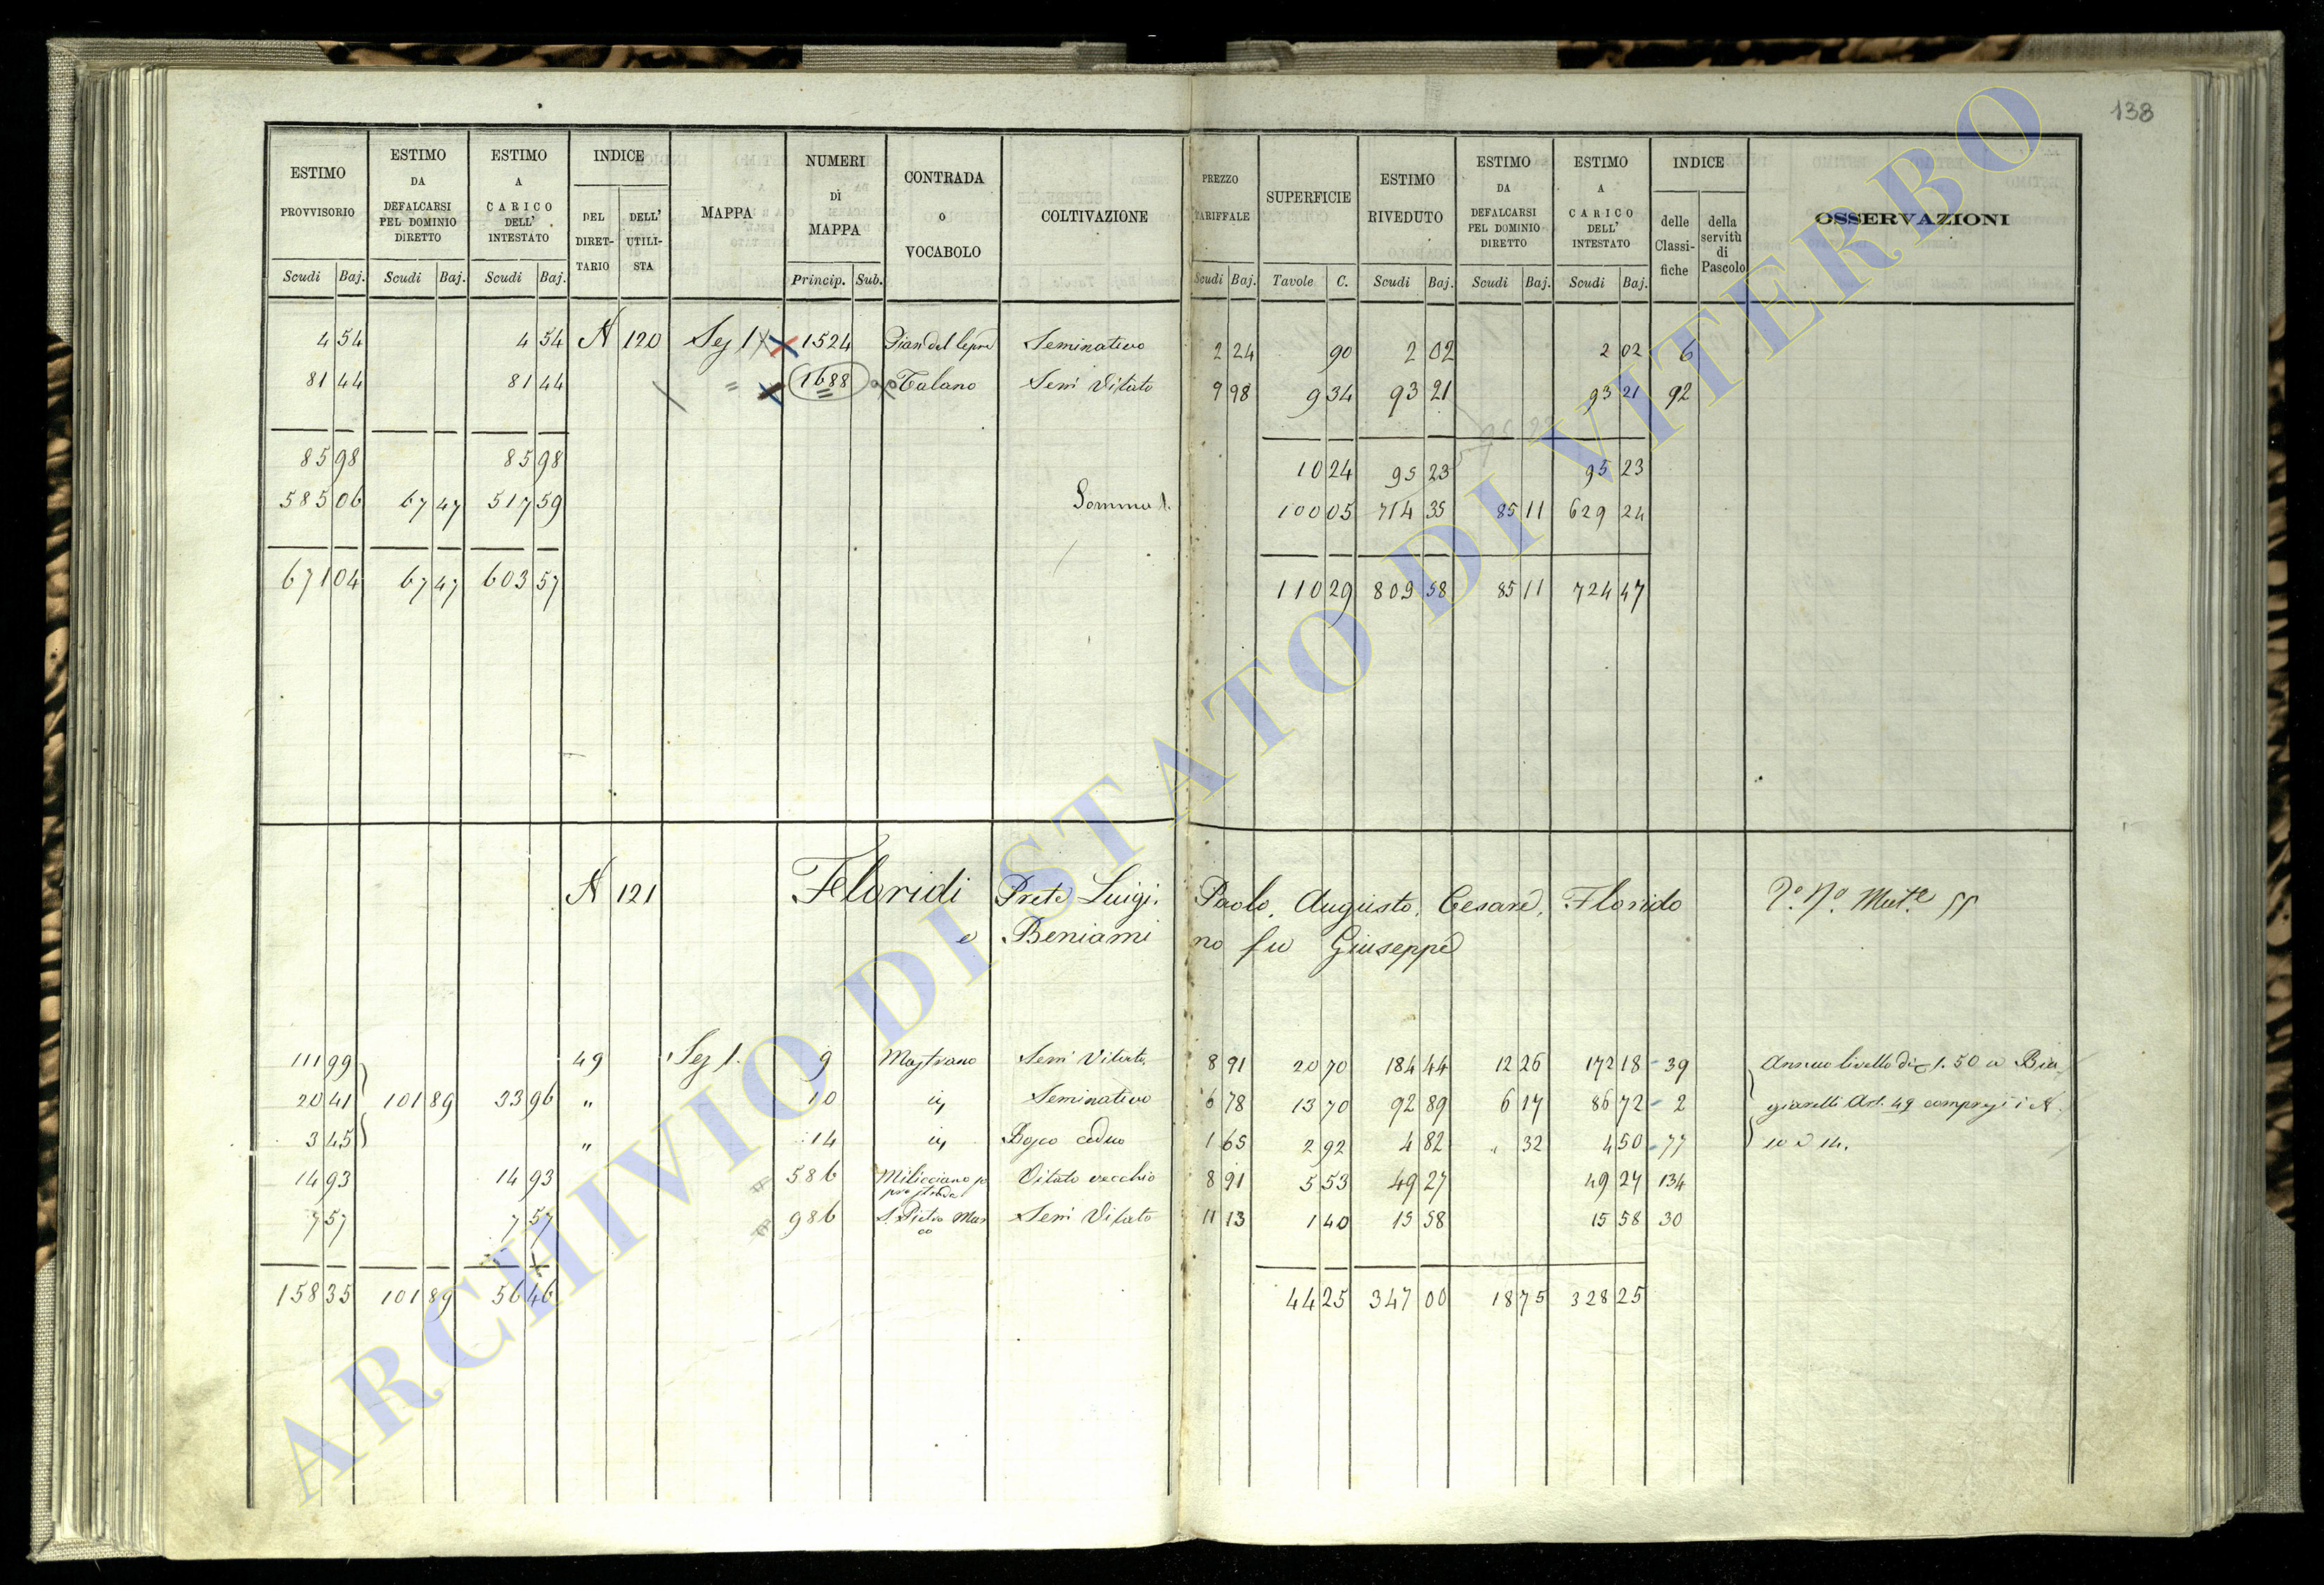 138
ESTIMO PROVVISORIO Scudi Baj.
ESTIMO DA DEFALCARSI PEL DOMINIO DIRETTO Scudi Baj.
ESTIMO A CARICO DELL' INTESTATO Scudi Baj.
INDICE DEL DIRET-TARIO DELL' UTILI-STA
MAPPA
NUMERI DI MAPPA Princip. Sub.
CONTRADA O VOCABOLO
COLTIVAZIONE
PREZZO TARIFFALE Scudi Baj.
SUPERFICIE Tavole C.
ESTIMO RIVEDUTO Scudi Baj.
ESTIMO DA DEFALCARSI PEL DOMINIO DIRETTO Scudi Baj.
ESTIMO A CARICO DELL' INTESTATO Scudi Baj.
INDICE delle Classi-fiche della servitù di Pascolo
OSSERVAZIONI
4 54 4 54 N 120 Sez 1 1524 Seminativo 2 24 90 2 02 2 02 6
81 44 81 44 = 1688 Talano Semi Vitato 9 98 9 34 93 21 93 21 92
85 98 85 98 10 24 95 23 95 23
585 06 67 47 517 59 Somma 100 05 714 35 85 11 629 24
671 04 67 47 603 57 110 29 809 58 85 11 724 47
N 121 Floridi Prete Luigi, Paolo, Augusto, Cesare, Florido
e Beniamino fu Giuseppe
111 99 49 Sez 1. 9 Mastrano Semi Vitato 8 91 20 70 184 44 12 26 172 18 39 Annuo livello di 1.50 a Bia
20 41 101 89 33 96 " 10 id Seminativo 6 78 13 70 92 89 6 17 86 72 2 giarelli Art. 49 compresi i N.
3 45 " 14 id Bosco ceduo 1 65 2 92 4 82 " 32 4 50 77 10 e 14.
14 93 14 93 586 Milicciano Vitato vecchio 8 91 5 53 49 27 49 27 134
7 57 7 57 986 S. Pietro Semi Vitato 11 13 1 40 15 58 15 58 30
158 35 101 89 56 46 44 25 347 00 18 75 328 25
ARCHIVIO DI STATO DI VITERBO